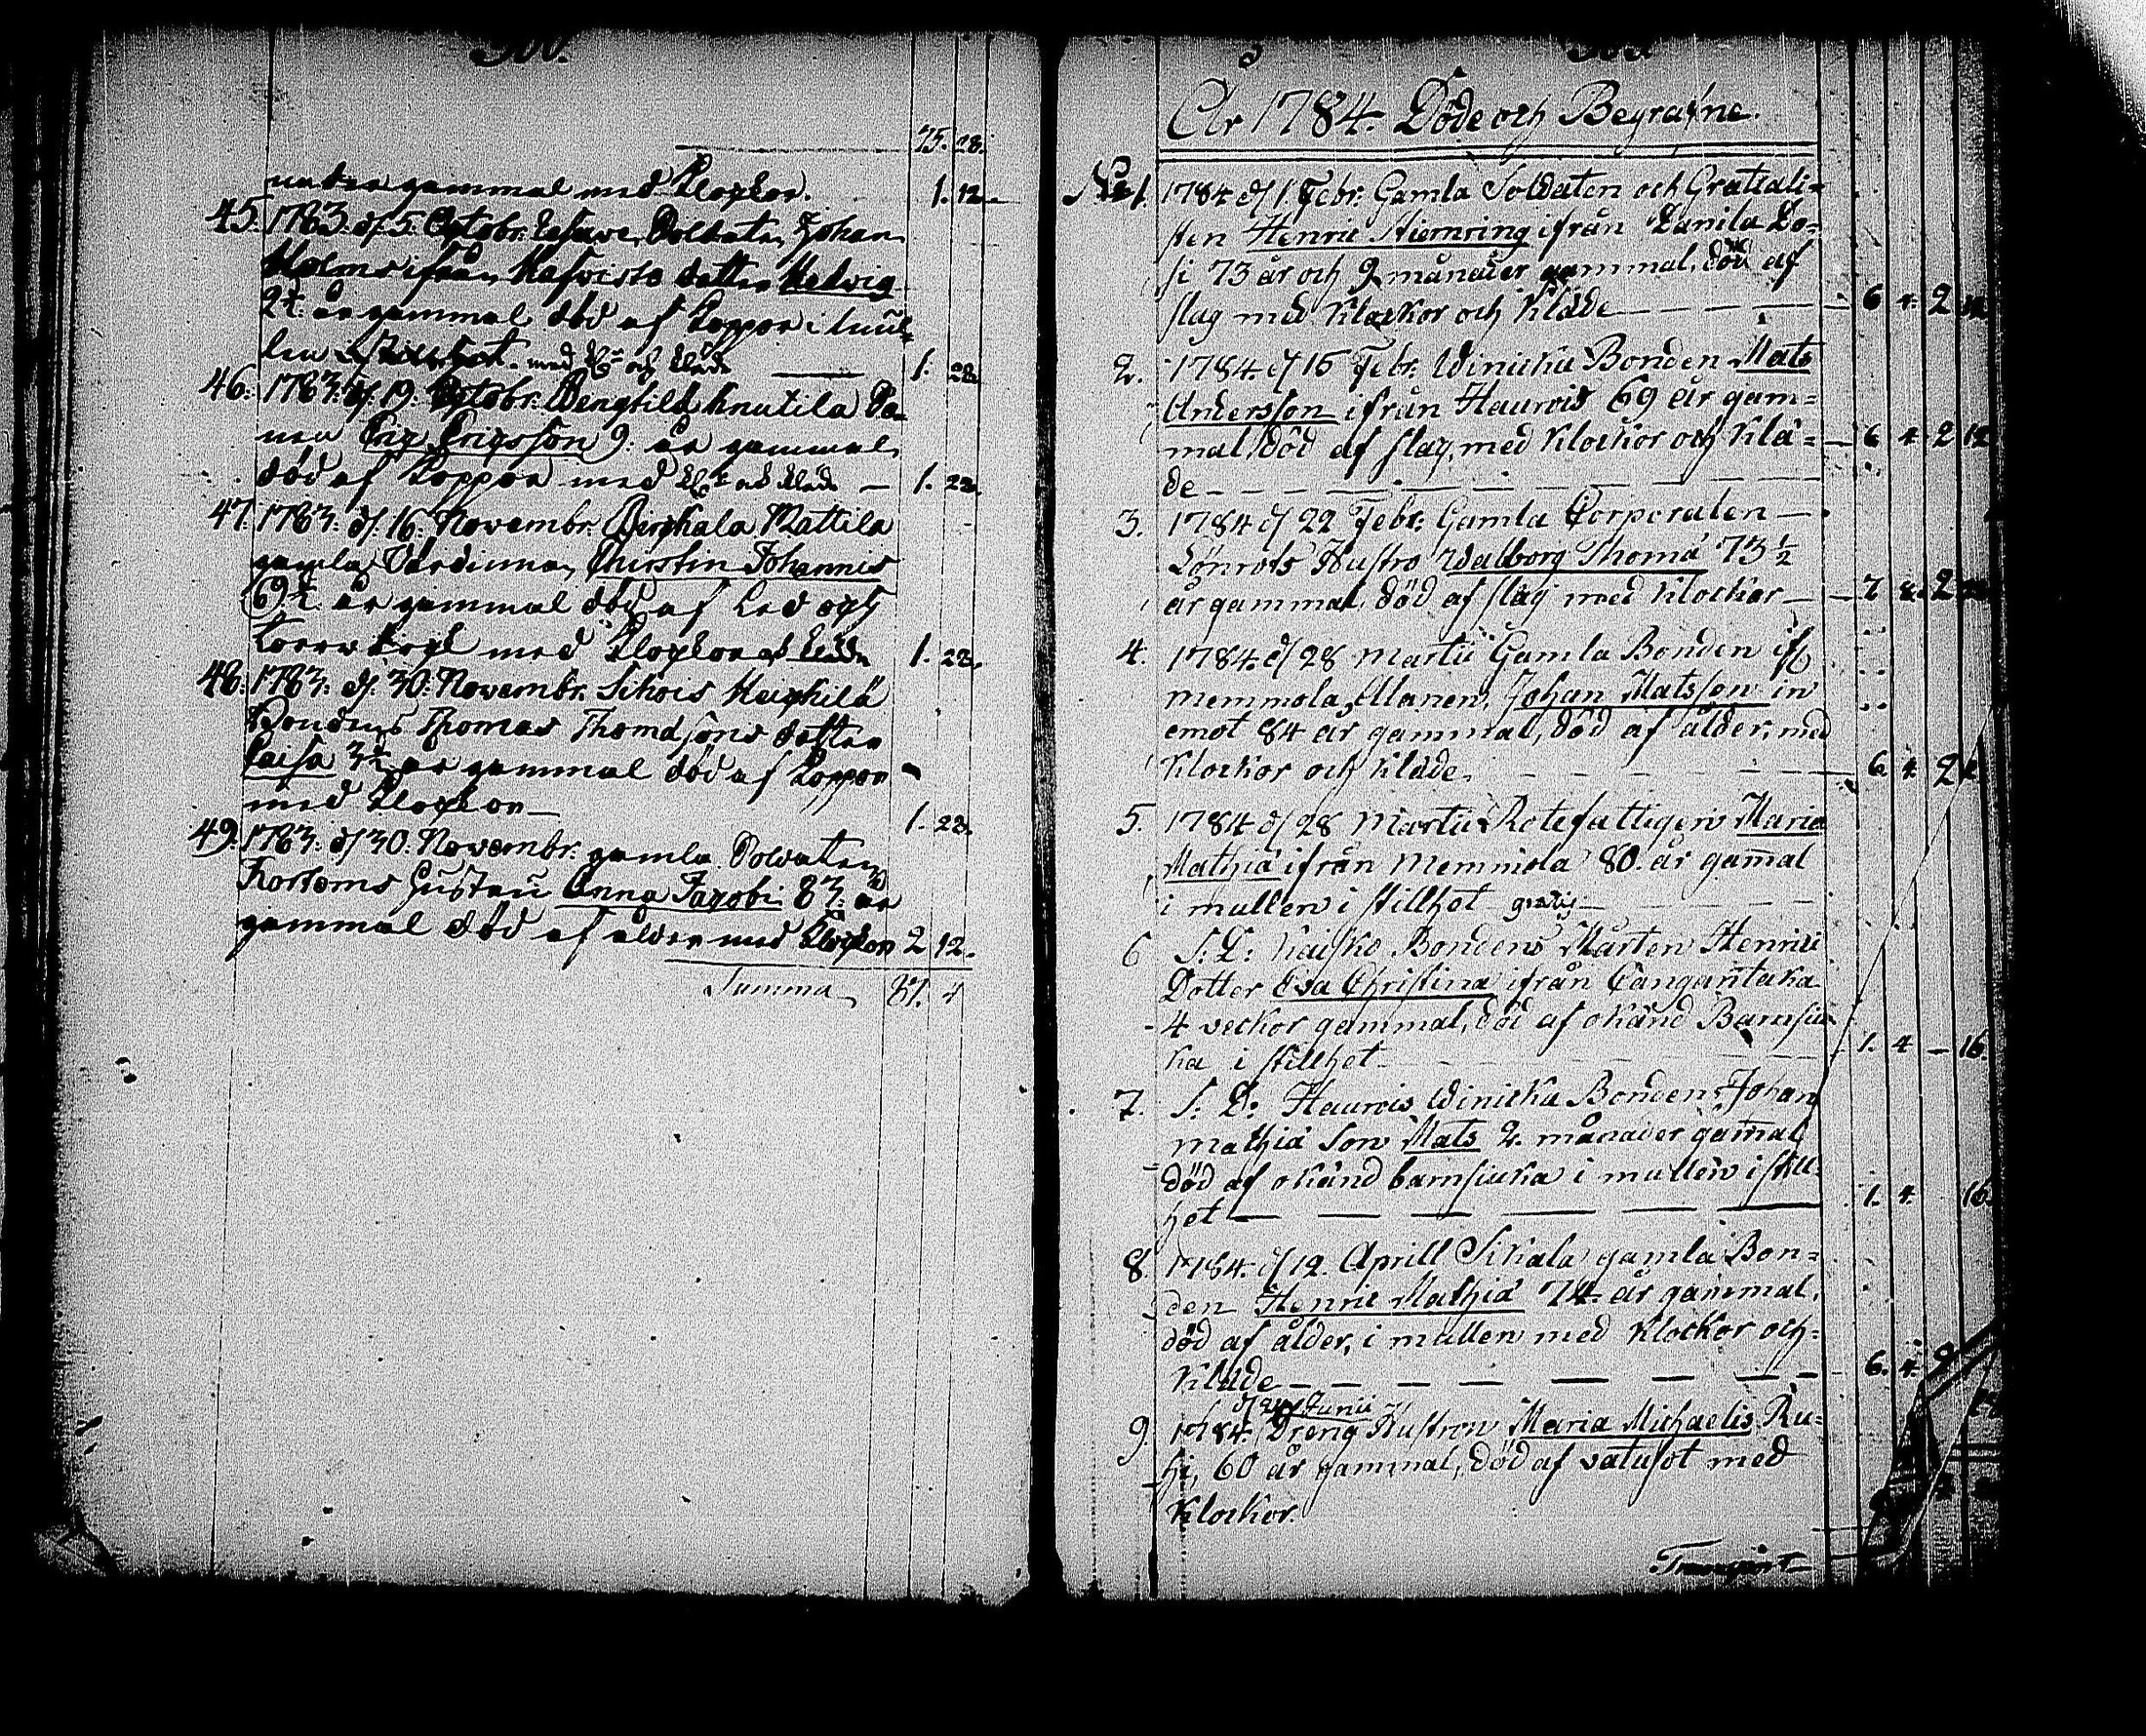 75. 28.
gammal med Klockor. 1. 12.
45. 1783. d. 5. Octobr. Soldaten Johan
Holms ifrån dotter Hedwig
2½ år gammal död af Koppor i mul-
len i stillhet med Kl: och kläde 1. 28.
46. 1783. d. 19. Octobr. Bengtilä Knutila
Eric Ericsson 9. år gammal
död af Koppor med Kl: och kläde 1. 28.
47. 1783. d. 16. Novembr. Birckala Mattila
gamla Värdinnan Christin Johannis
69½ år gammal död af och
med Klockor och kläde 1. 28.
48. 1783. d. 30. Novembr. Sikois Heickilä
Bondens Thomas Thomæsons dotter
Caisa 3½ år gammal död af Koppor
med Klockor 1. 28.
49. 1783. d. 30. Novembr. gamla Soldaten
Hustru Anna Jacobi 83. år
gammal död af ålder med Klockor 2 12.
Summa 87. 4
År 1784. Döde och Begrafne.
No 1. 1784 d. 1. Febr: Gamla Soldaten och Gratiali=
sten Henric ifrån Danila Lo=
si 73 år och 9 månader gammal, död af
slag med Klockor och Kläde 6 4. 2
2. 1784. d. 15 Febr: Winickä Bonden Mats
Andersson ifrån Haurois 69 år gam=
mal död af slag, med Klockor och Klä= 6 4 2 12
de
3. 1784 d. 22 Febr: Gamla Corporalen
Lönrots Hustro Walborg Thomæ 73½
år gammal, död af slag med Klockor 7 8. 2
4. 1784. d. 28 Martii Gamla Bonden
Memmola, Johan Matsson in
emot 84 år gammal, död af ålder, med
Klockor och Kläde. 6. 4. 2
5. 1784 d. 28 Martii Rotefattigen Maria
Mathiæ ifrån Memmola 80. år gam̄al
i mullen i stillhet gratis
6 S. D: Bondens Mårten Henrici
Dotter Eva Christina ifrån Cangantaka
4 veckor gammal, död af okänd Barnsiu
ka i stillhet 1. 4 – 16
7. S. D: Haurois Winickä Bondens Johan
Mathiæ Son Mats 2. månader gam̄al
död af okänd barnsiuka i mullen i still-
het 1. 4. 16
8. 1784. d. 12. Aprill Sikala gamla Bon=
den Henric Mathiæ 74. år gammal,
död af ålder, i mullen med Klockor och
Kläde 6. 4. 2
d. 24 Junii
9. 1784. Dreng Hustron Maria Michaelis Ru=
hi, 60 år gammal, död af vatusot med
Klockor.
Transport